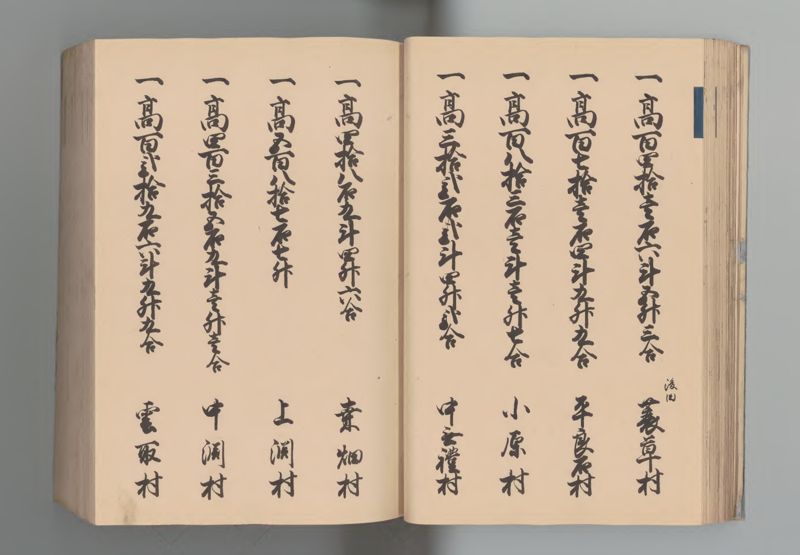 一高百四拾壱石六斗五升三合 蓑草村
一高百七拾壱石四斗九升九合 平良石村
一高百八拾三石壱斗壱升七合 小原村
一高三拾弐石弐斗四升弐合 中無礼村
一高四拾八石九斗四升六合 桑畑村
一高五百八拾七石七升 上渕村
一高四百三拾五石九斗壱升壱合 中渕村
一高百弐拾九石六斗九升九合 雲取村